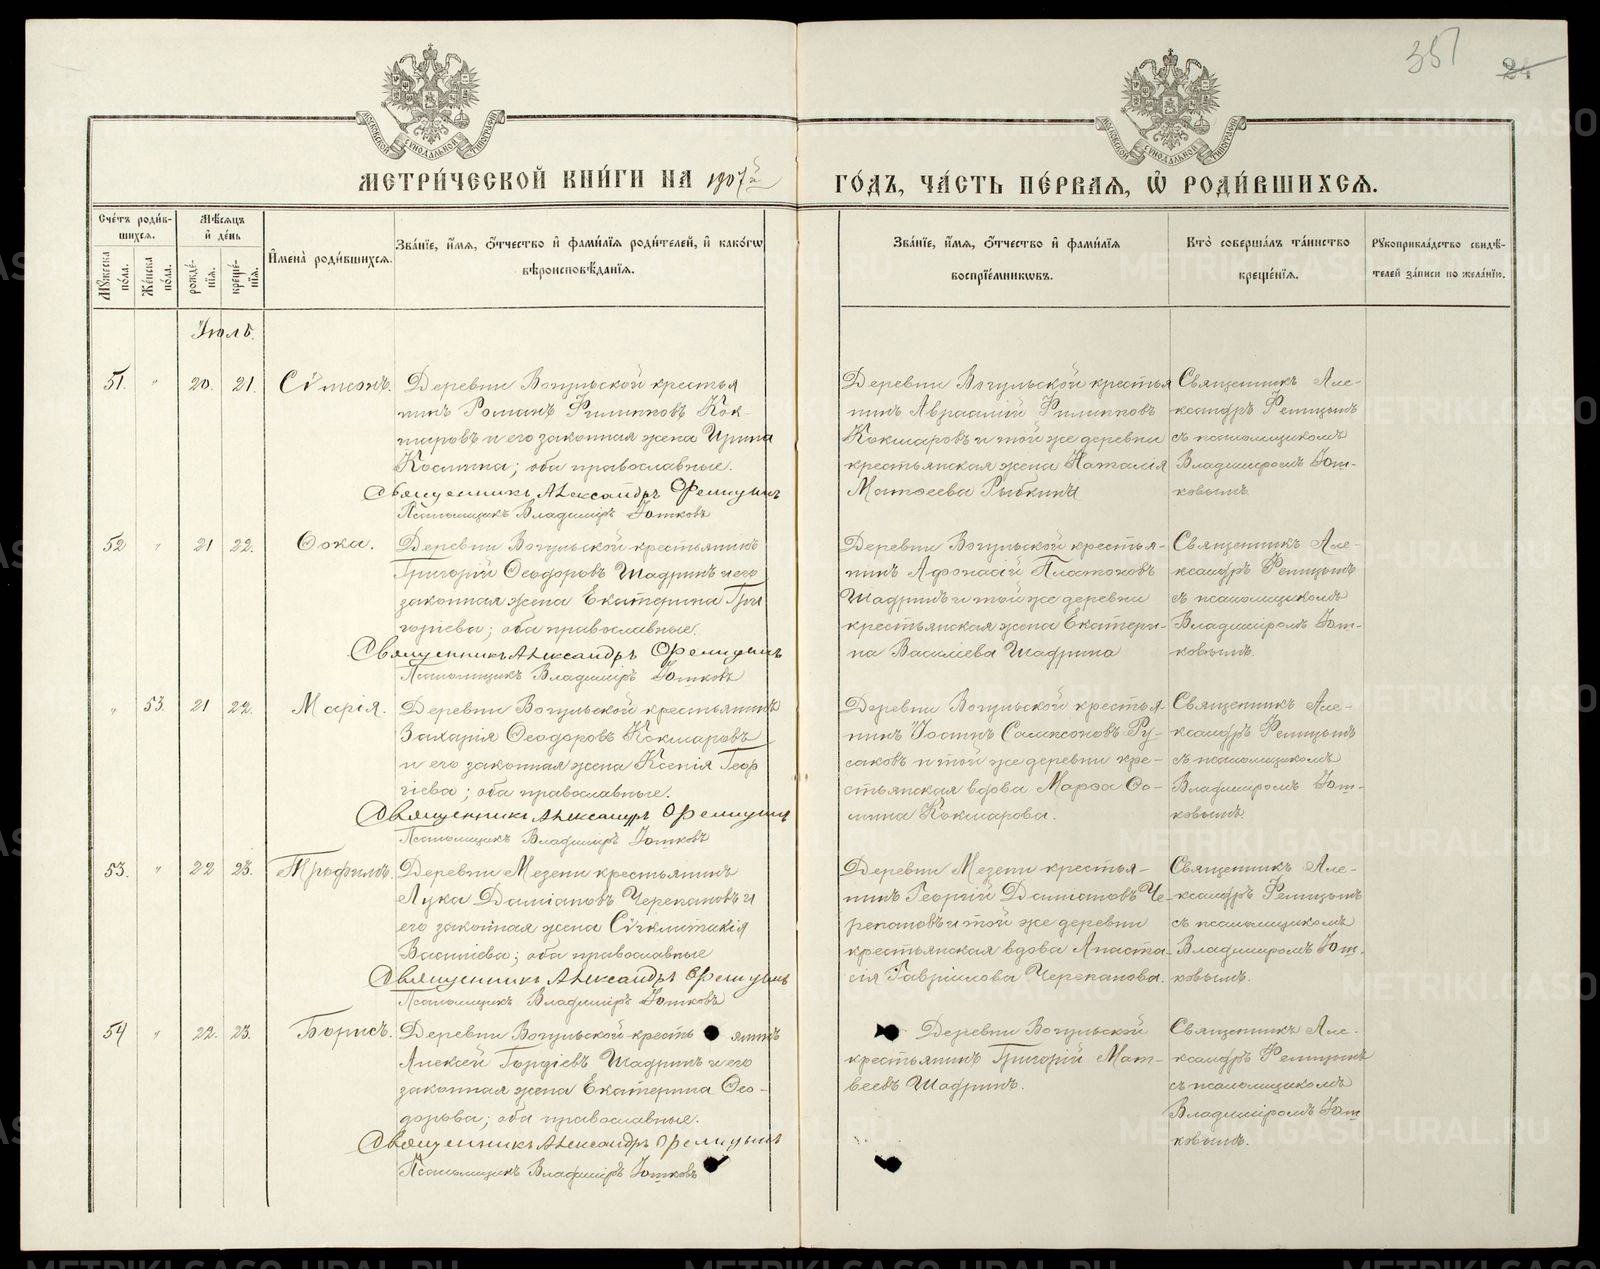 351
24
МЕТРИ́ЧЕСКОЙ КНИ́ГИ НА 1907й
ГО́ДЪ, ЧА́СТЬ ПЕ́РВАЯ, Ѡ҆ РОДИ́ВШИХСЯ.
Сче́тъ роди́в-
шихся.
Мѣсяцъ
и҆ де́нь
Му́жеска по́ла.
Же́нска по́ла.
рожде́-
нїѧ.
креще́-
нїѧ.
И҆мена̀ роди́вшихся.
Зва́нїе, и҆́мѧ, ѻ҆́тчество и҆ фами́лїѧ роди́телей, и҆ како́гѡ
вѣроисповѣ́данїѧ.
Зва́нїе, и҆́мѧ, ѻ҆́тчество и҆ фами́лїѧ
воспрїе́мникѡвъ.
Кто̀ соверша́лъ та́инство
креще́нїѧ.
Рꙋкоприкла́дство свидѣ́-
телей за́писи по жела́нїю.
Іюль.
51. " 20. 21. Сѵмеонъ.
Деревни Вогульской крестья
нинъ Романъ Филипповъ Кок-
шаровъ и его законная жена Ирина
Космина; оба православные.
Священникъ Александръ Фелицынъ
Псаломщикъ Владиміръ Іотковъ
Деревни Вогульской крестья
нинъ Авраамій Филипповъ
Кокшаровъ и той же деревни
крестьянская жена Наталія
Матѳеева Рыбкина
Священникъ Але-
ксандръ Фелицынъ
съ псаломщикомъ
Владиміромъ Іот-
ковымъ.
52 " 21 22. Ѳока.
Деревни Вогульской крестьянинъ
Григорій Ѳеодоровъ Шадринъ и его
законная жена Екатерина Гри
горіева; оба православные.
Священникъ Александръ Фелицынъ
Псаломщикъ Владиміръ Іотковъ
Деревни Вогульской крестья-
нинъ Афонасій Платоновъ
Шадринъ и той же деревни
крестьянская жена Екатери-
на Васильева Шадрина
Священникъ Але-
ксандръ Фелицынъ
съ псаломщикомъ
Владиміромъ Іот-
ковымъ.
" 53. 21 22. Марія.
Деревни Вогульской крестьянинъ
Захарія Ѳеодоровъ Кокшаровъ
и его законная жена Ксенія Геор
гіева; оба православные.
Священникъ Александръ Фелицынъ
Псаломщикъ Владиміръ Іотковъ
Деревни Вогульской крестья
нинъ Іоаннъ Сампсоновъ Ру-
саковъ и той же деревни кре-
стьянская вдова Марѳа Ѳо-
мина Кокшарова.
Священникъ Але-
ксандръ Фелицынъ
съ псаломщикомъ
Владиміромъ Іот-
ковымъ
53. " 22 23. Трофимъ.
Деревни Мезени крестьянинъ
Лука Даміановъ Черепановъ и
его законная жена Сѵгклитикія
Васильева; оба православные
Священникъ Александръ Фелицынъ
Псаломщикъ Владиміръ Іотковъ
Деревни Мезени крестья-
нинъ Георгій Даміановъ Че-
репановъ и той же деревни
крестьянская вдова Анаста-
сія Гавриилова Черепанова.
Священникъ Але-
ксандръ Фелицынъ
съ псаломщикомъ
Владиміромъ Іот-
ковымъ.
54 " 22. 23. Борисъ.
Деревни Вогульской кресть янинъ
Алексей Гордіевъ Шадринъ и его
законная жена Екатерина Ѳео-
дорова; оба православные.
Священникъ Александръ Фелицынъ
Псаломщикъ Владиміръ Іотковъ
Деревни Вогульской
крестьянинъ Григорій Мат-
веевъ Шадринъ.
Священникъ Але-
ксандръ Фелицынъ
съ псаломщикомъ
Владиміромъ Іот-
ковымъ.
METRIKI.GASO-URAL.RU